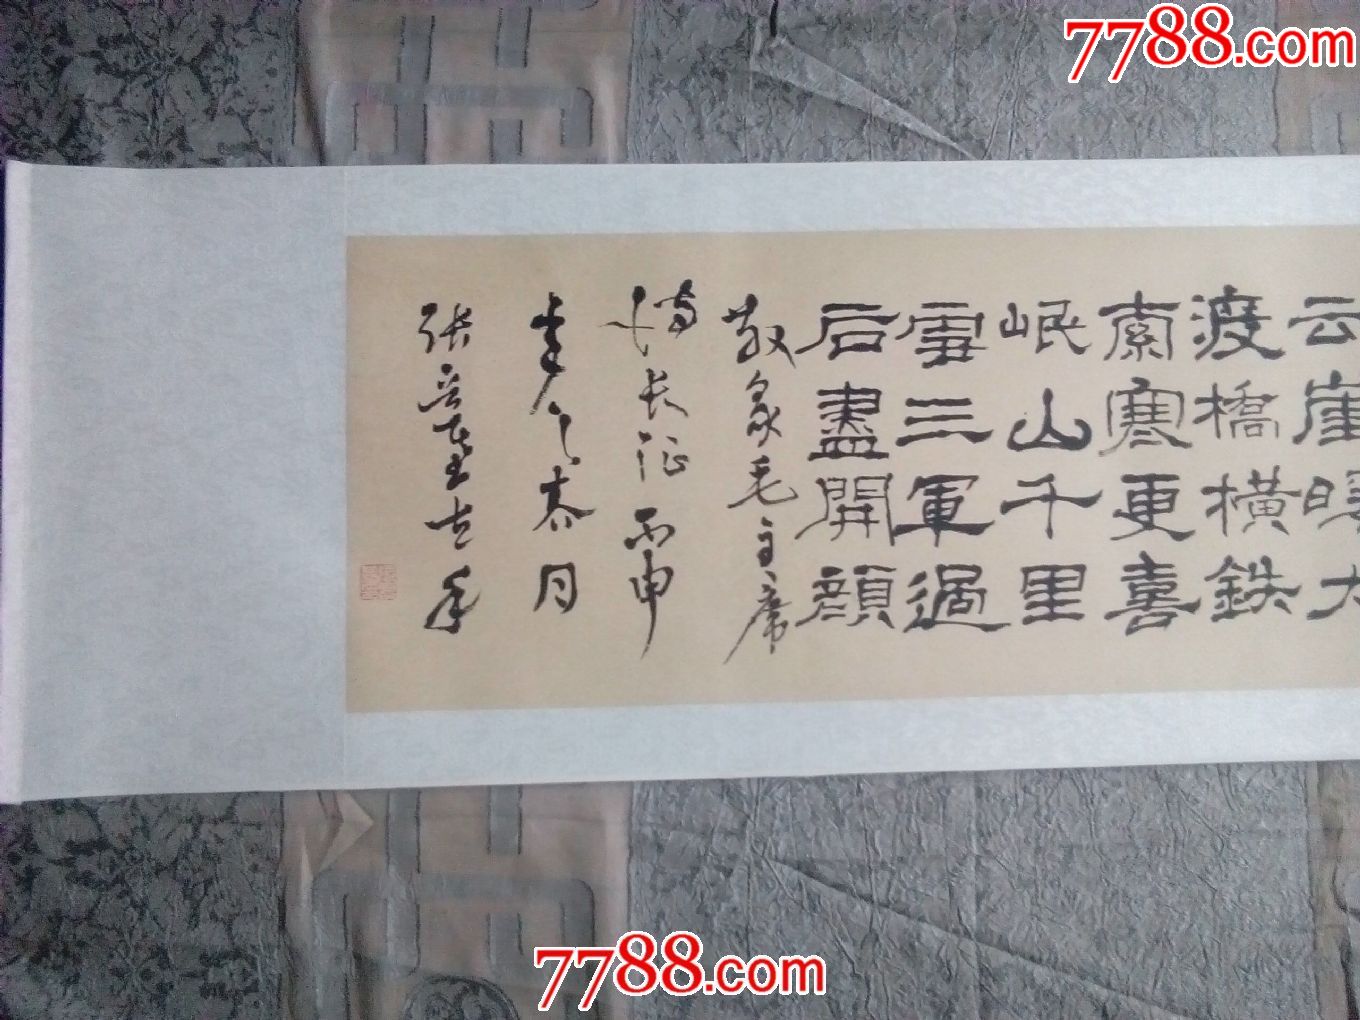 7788.com
云崖暖大
渡橋橫鉄
索寒更喜
岷山千里
雪三軍過
后盡開顔
敬录毛主席
诗长征丙申
年之月
张
7788.com